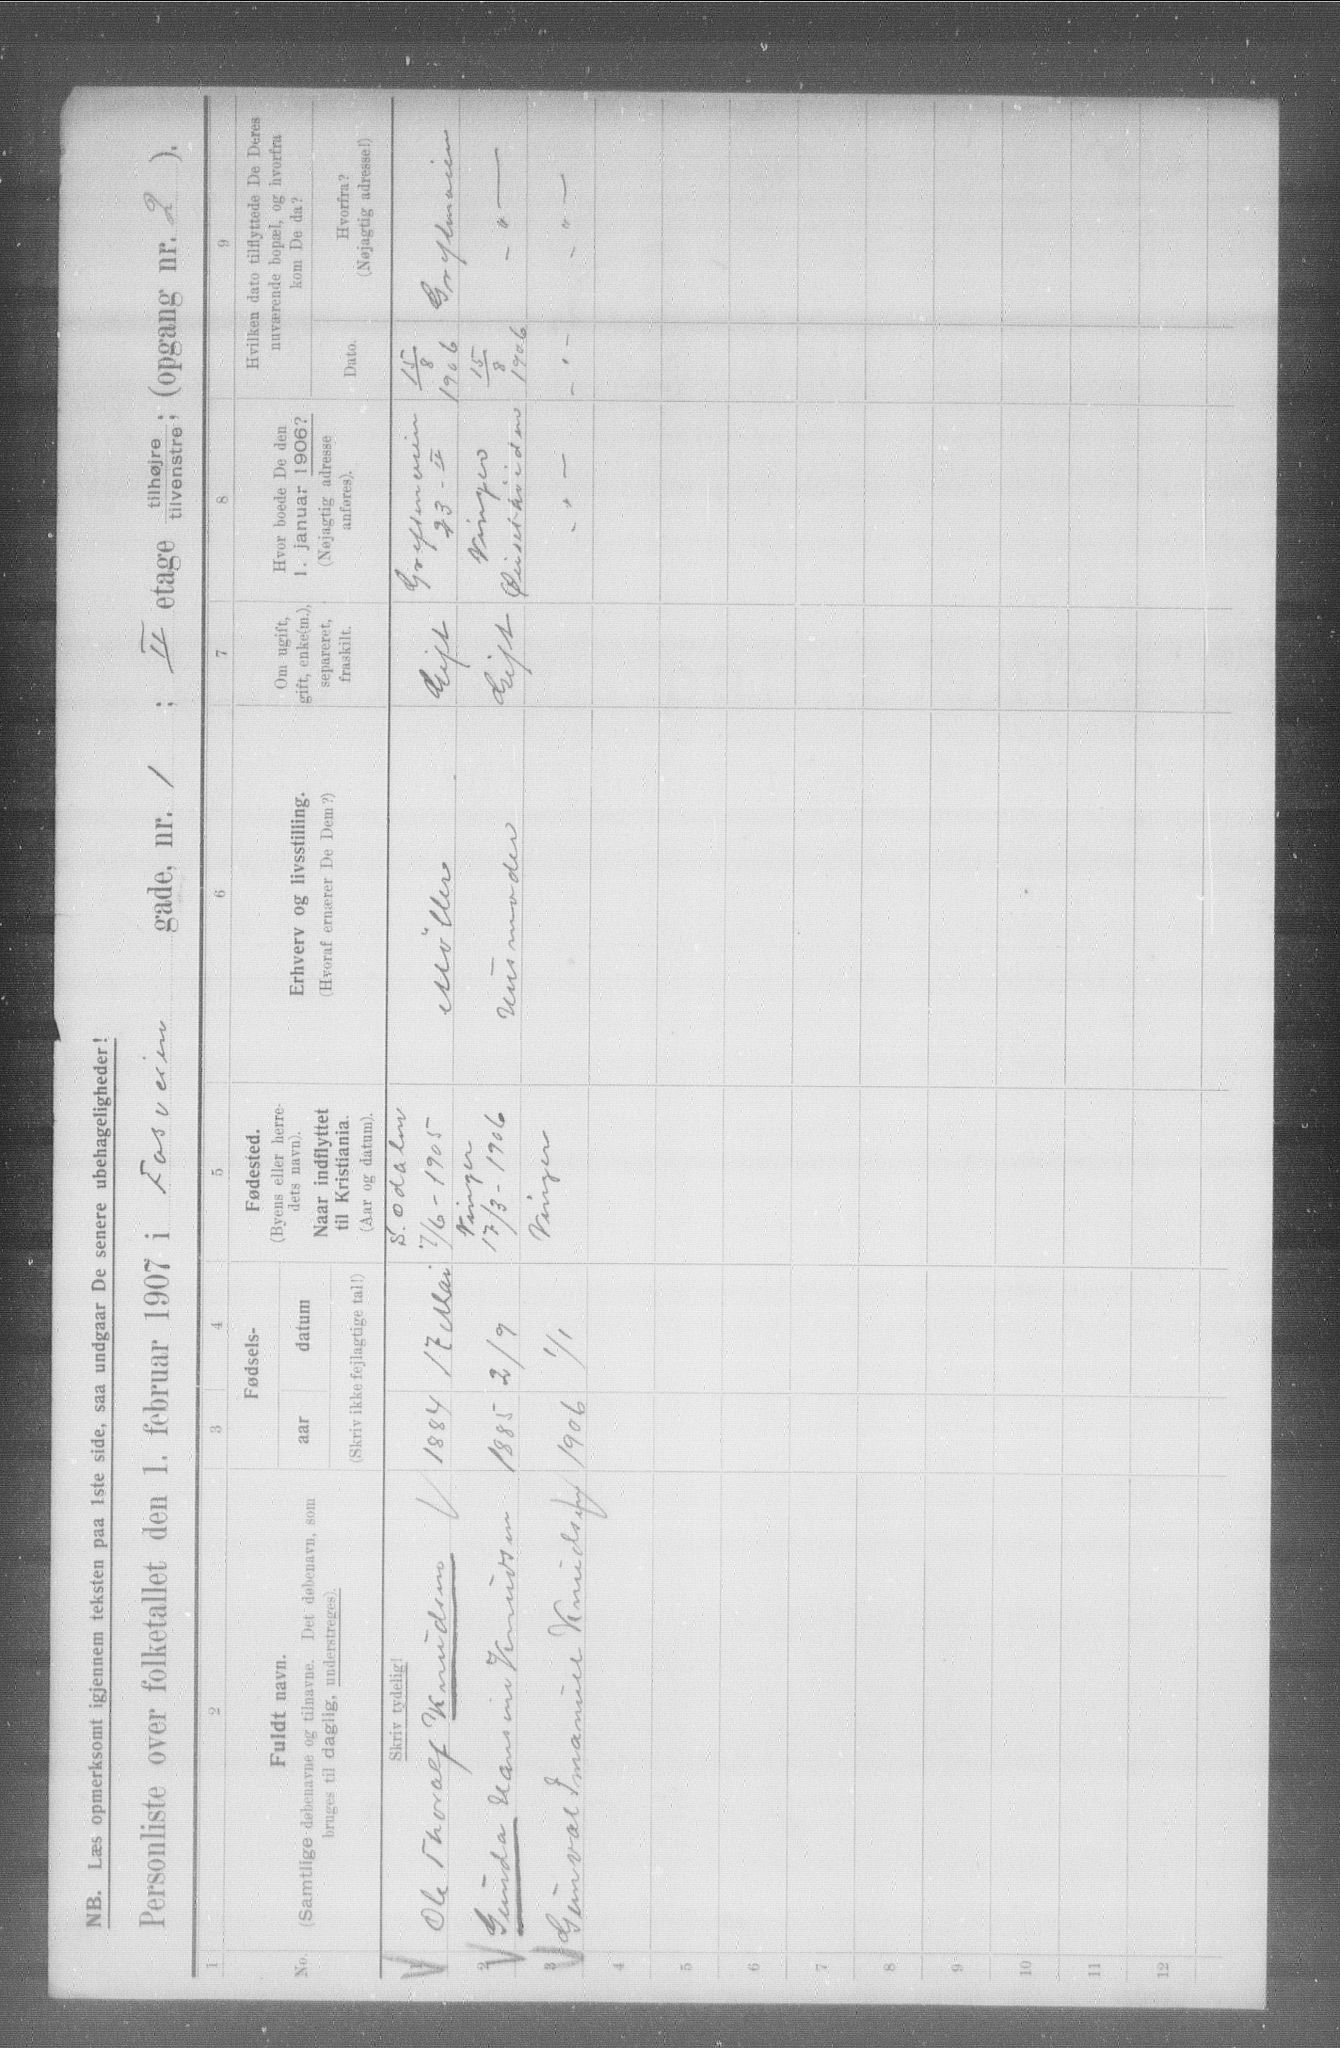 NB. Læs opmerksomt igjennem teksten paa 1ste side, saa undgaar De senere ubehageligheder!
Personliste over folketallet den 1. februar 1907 i Fosveien gade, nr. 1 ; II etage tilhøjre tilvenstre; (opgang nr. 2 ).
1 2 3 4 5 6 7 8 9
No.
Fuldt navn.
(Samtlige døbenavne og tilnavne. Det døbenavn, som
bruges til daglig, understreges).
Fødsels-
aar datum
(Skriv ikke fejlagtige tal!)
Fødested.
(Byens eller herre-
dets navn).
Naar indflyttet
til Kristiania.
(Aar og datum).
Erhverv og livsstilling.
(Hvoraf ernærer De Dem?)
Om ugift,
gift, enke(m.),
separeret,
fraskilt.
Hvor boede De den
1. januar 1906?
(Nøjagtig adresse
anføres).
Hvilken dato tilflyttede De Deres
nuværende bopæl, og hvorfra
kom De da?
Dato.
Hvorfra?
(Nøjagtig adresse!)
Skriv tydelig!
1 Ole Thoralf Knudsen 1884 17 Mai S. Odalen 7/6-1905 Möller Gift 23 - II 15/8 1906
2 Gunda Hansine Knudsen 1885 2/9 Vinger 17/3-1906 Husmoder Gift Vinger 15/8 1906 - " -
3 Gunval Imanuel Knudsen 1906 1/1 Vinger - " - - " - - " -
4
5
6
7
8
9
10
11
12